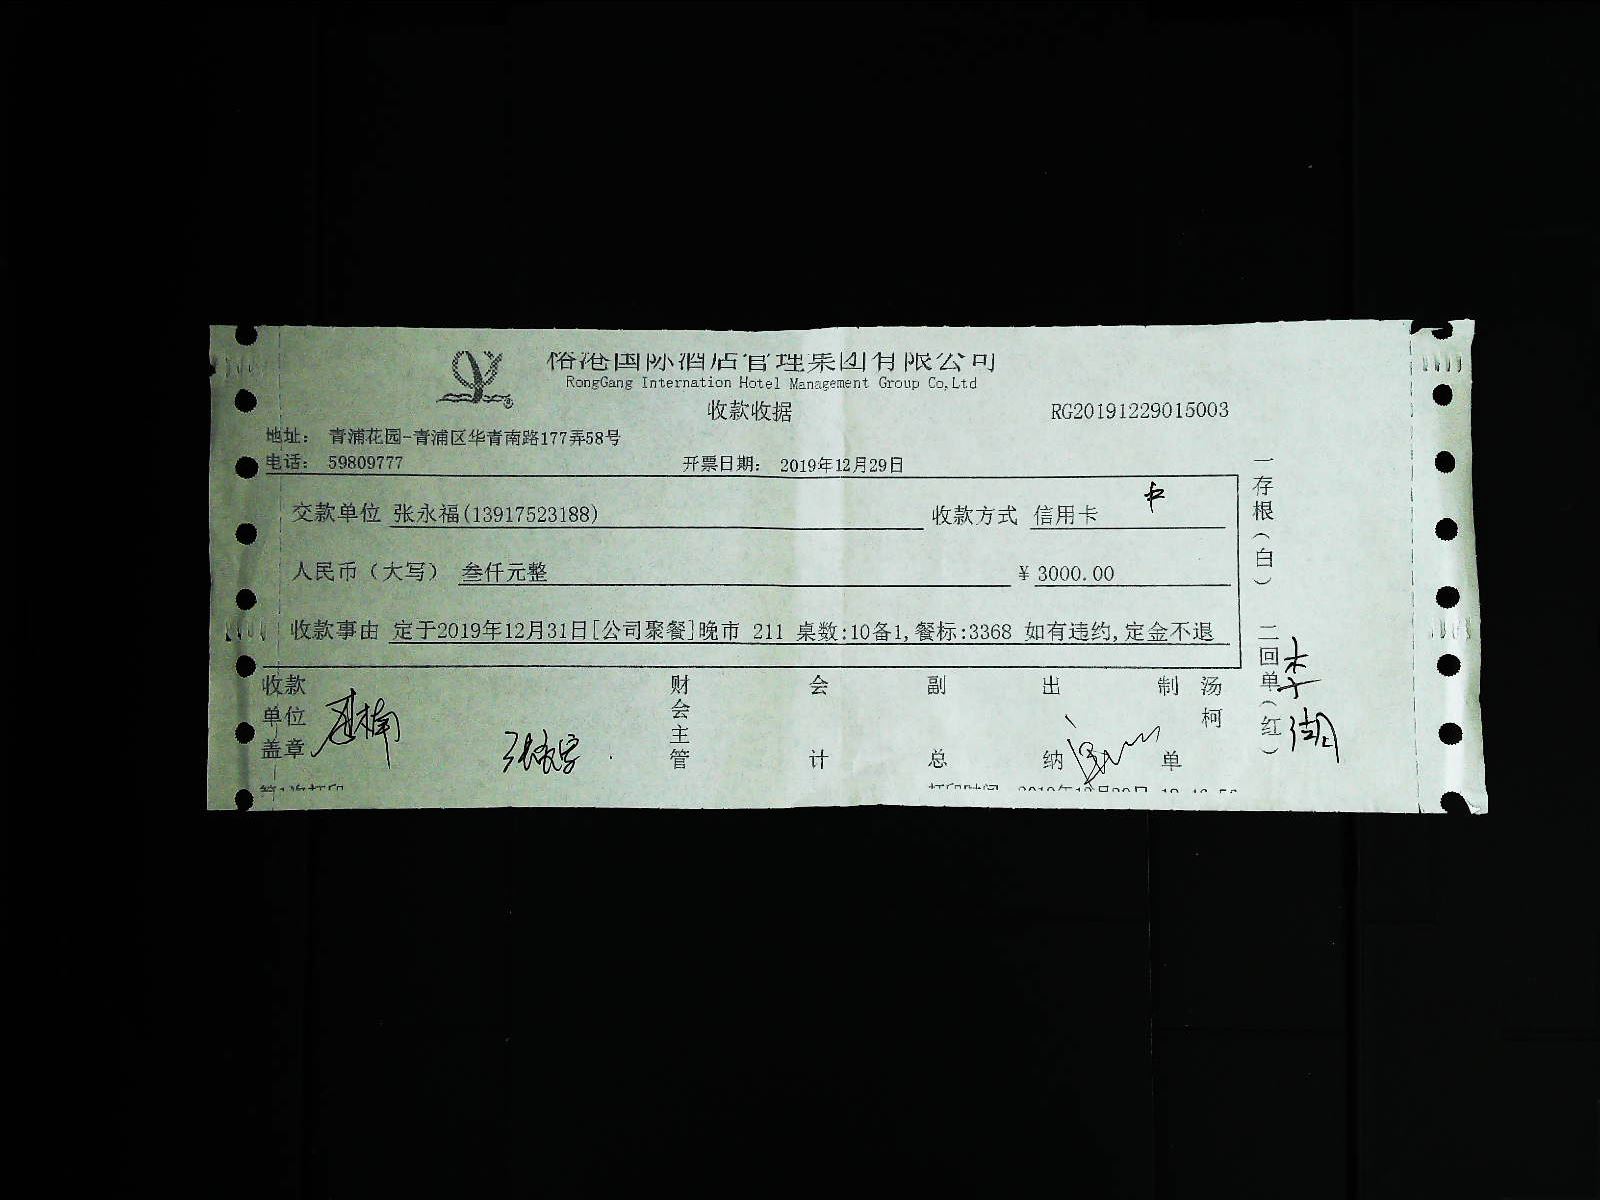 港国际酒店管理集团有限公司
RongGang Internation Hotel Management Group Co,Ltd
收款收据
RG20191229015003
地址： 青浦花园-青浦区华青南路177弄58号
电话： 59809777
开票日期： 2019年12月29日
交款单位 张永福(13917523188)
收款方式 信用卡
人民币（大写） 叁仟元整
￥3000.00
收款事由 定于2019年12月31日[公司聚餐]晚市 211 桌数:10备1,餐标:3368 如有违约,定金不退
收款单位盖章
财会主管
会计
副总
出纳
制单
汤柯
一存根(白)
二回单(红)
第1次打印
打印时间